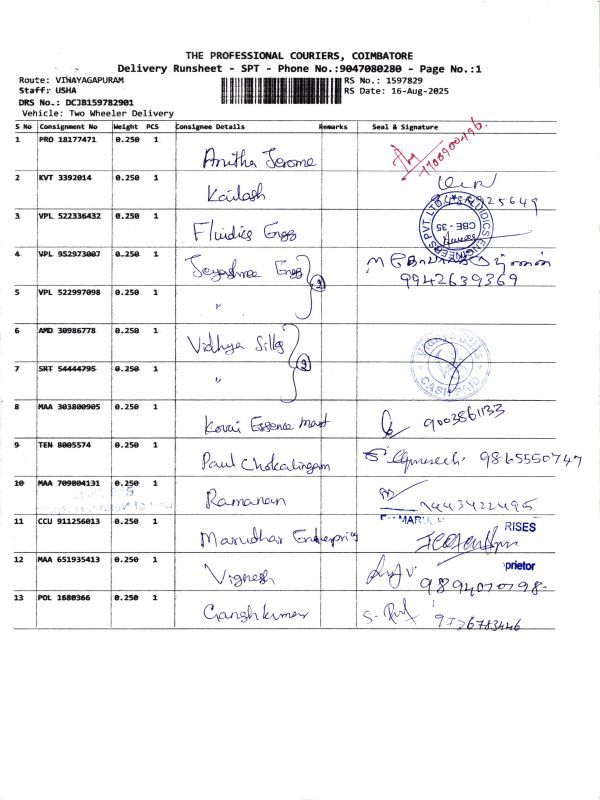 THE PROFESSIONAL COURIERS, COIMBATORE
Delivery Runsheet - SPT - Phone No.:9047080280 - Page No.:1
Route: VINAYAGAPURAM RS No.: 1597829
Staff: USHA RS Date: 16-Aug-2025
DRS No.: DCJB159782901
Vehicle: Two Wheeler Delivery
S No Consignment No Weight PCS Consignee Details Remarks Seal & Signature
1 PRO 18177471 0.250 1 Anitha Jerome
2 KVT 3392014 0.250 1 Kailash
3 VPL 522336432 0.250 1 Fluidics Engg CBE - 35
4 VPL 952973007 0.250 1 Jeyashree Engg 2 9942639369
5 VPL 522997098 0.250 1 "
6 AMD 30986778 0.250 1 Vidhya Sillks 2
7 SRT 54444795 0.250 1 " CASH PAID
8 MAA 303800905 0.250 1 Kovai Essence Mart 9003861133
9 TEN 8005574 0.250 1 Paul Chokalingam 9865550747
10 MAA 709004131 0.250 1 Ramanan
11 CCU 911256013 0.250 1 Marudhar Enterprises RISES
12 MAA 651935413 0.250 1 Vignesh prietor
13 POL 1680366 0.250 1 Ganghkumar